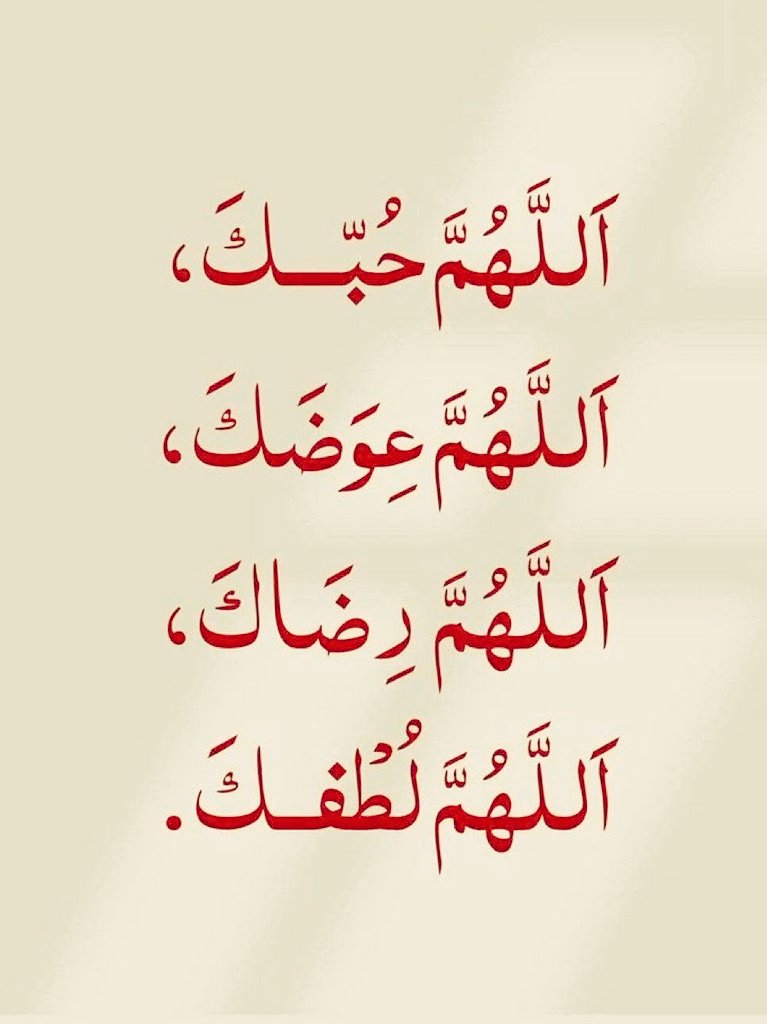 اَللَّهُمَّ حُبّـــكَ،
اَللَّهُمَّ عِوَضَكَ،
اَللَّهُمَّ رِضَاكَ،
اَللَّهُمَّ لُطْفـــكَ.